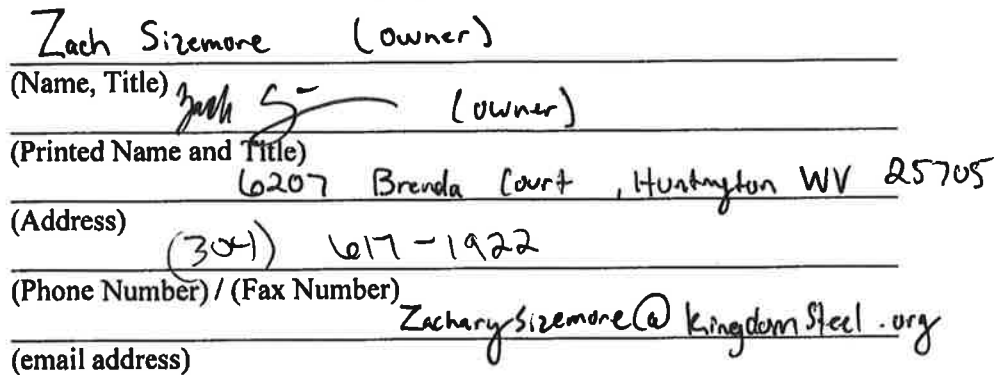 Zach Sizemore (owner)
(Name, Title)
Zach S (owner)
(Printed Name and Title)
6207 Brenda Court, Huntington WV 25705
(Address)
(304) 617-1922
(Phone Number) / (Fax Number)
ZacharySizemore@kingdomSteel.org
(email address)